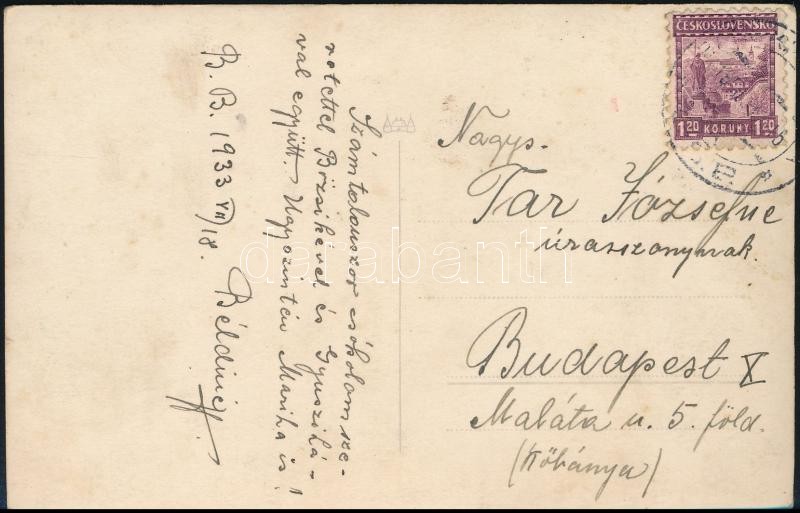 Számtalanszor csókolom sze-
retettel Bözsikével és Gyuszihá-
val együtt. Ugyszintén Mariha is!
B. B. 1933 VII/18.
ČESKOSLOVENSKO
1.20 KORUNY 1.20
Nagys.
Tar Józsefne
úrasszonynak.
Budapest X
Maláta u. 5. föld.
(Kőbánya)
darabanth